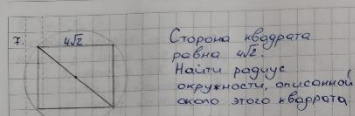 7. 4√2
Сторона квадрата
равна 4√2.
Найти радиус
окружности, описанной
около этого квадрата